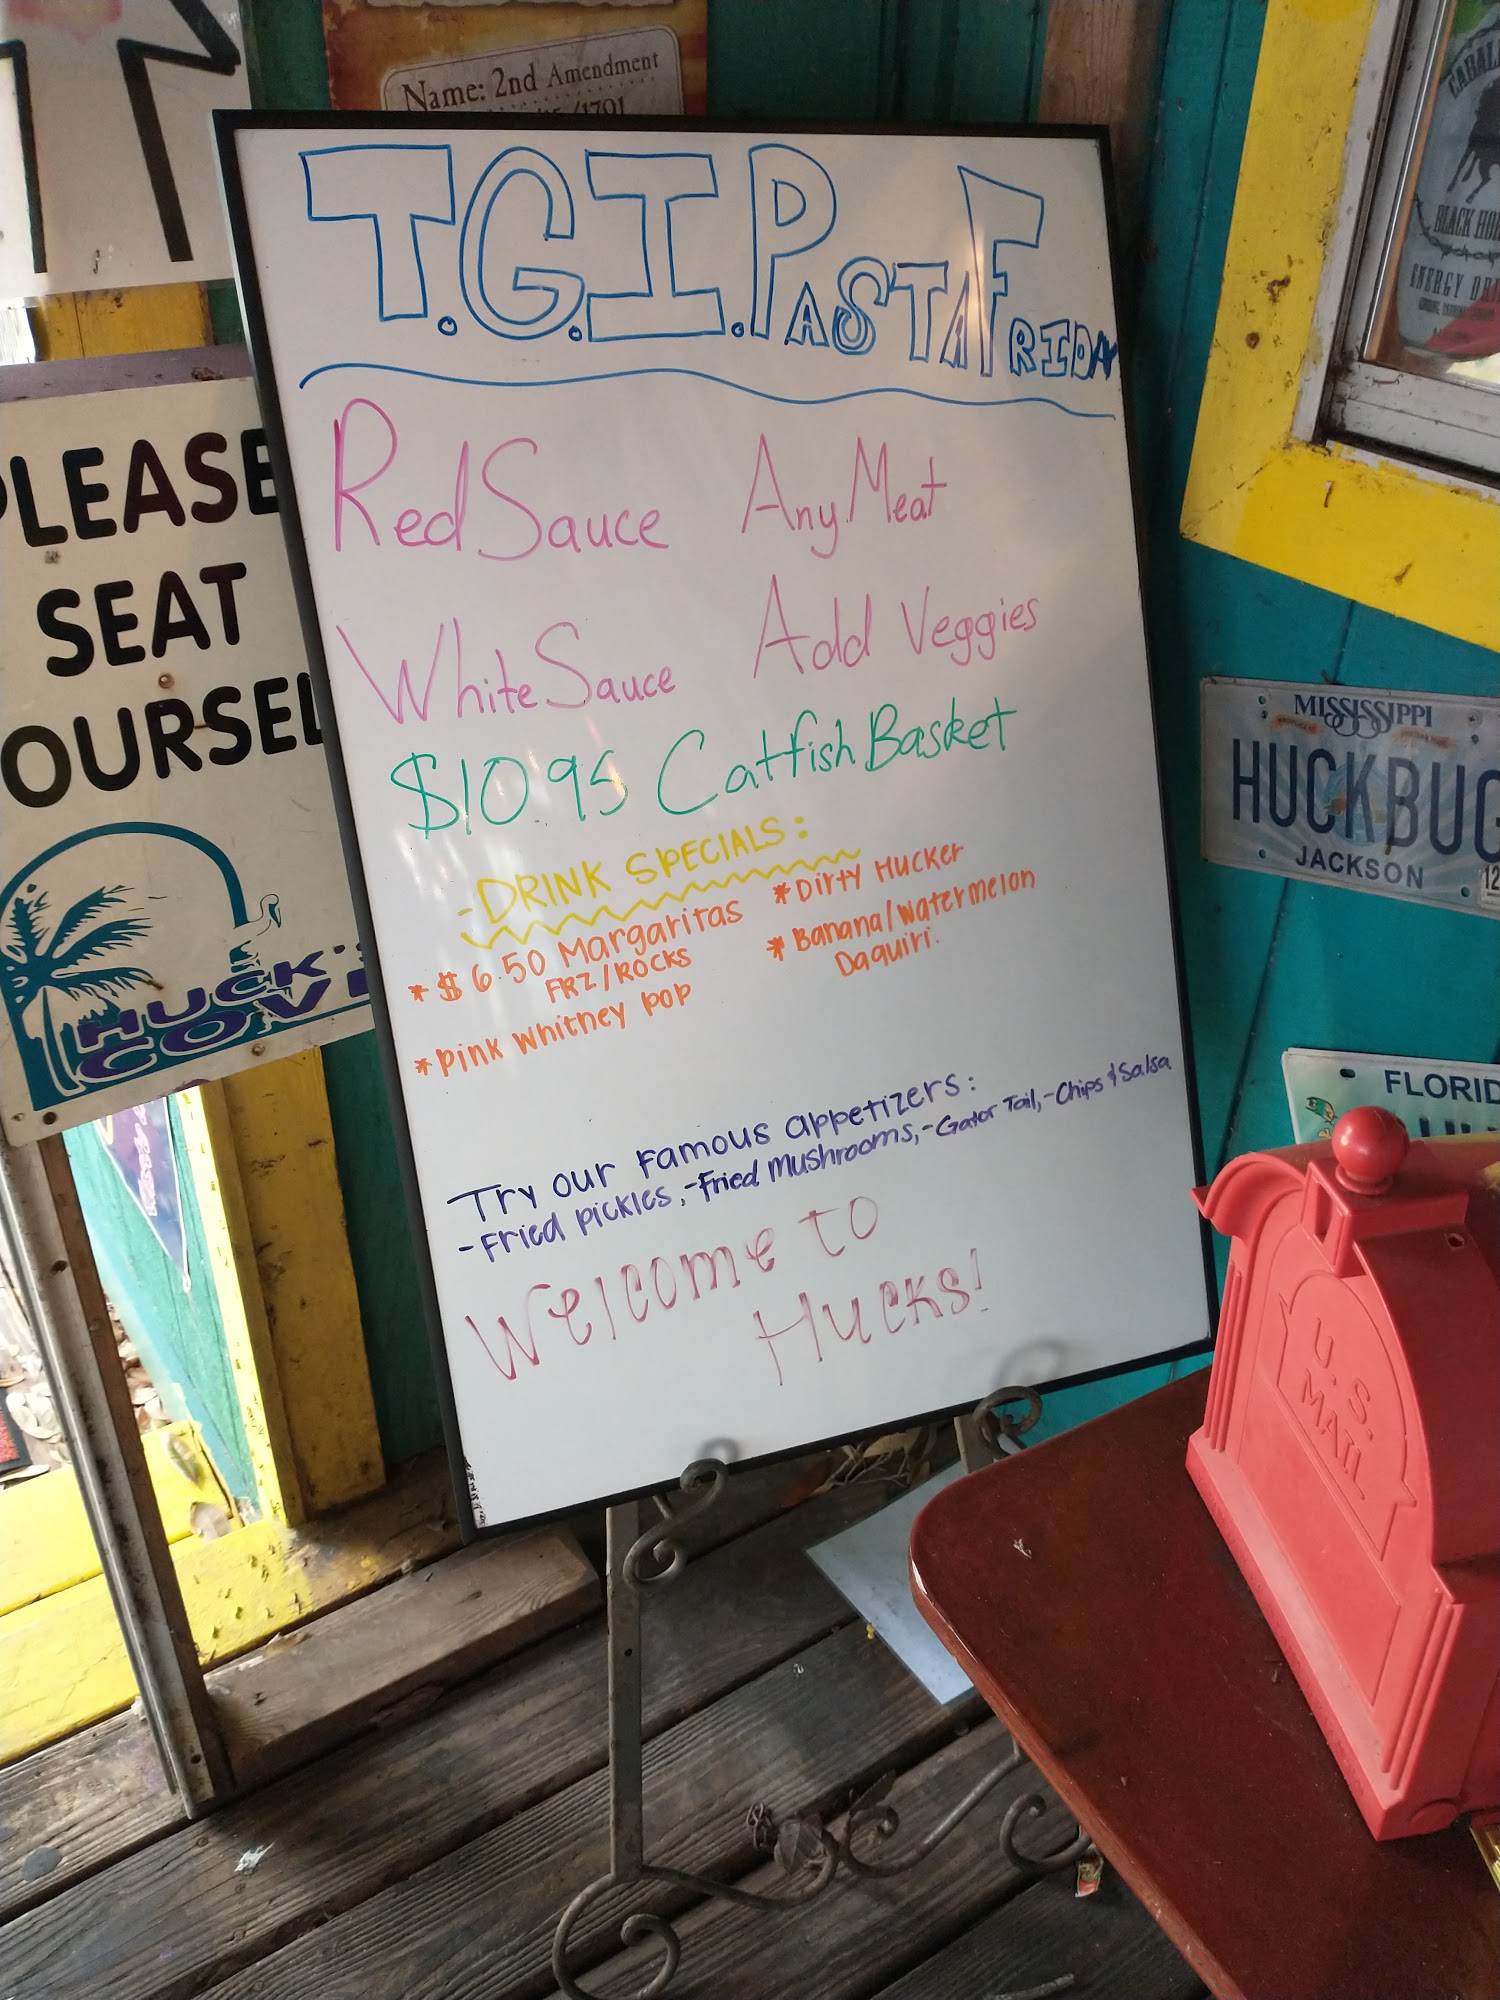 Name: 2nd Amendment
/1791
T.G.I. PASTA FRIDAY
Red Sauce Any Meat
White Sauce Add Veggies
$10.95 Catfish Basket
- DRINK SPECIALS:
* $6.50 Margaritas
FRZ/ROCKS
* Pink Whitney POP
* Dirty Hucker
* Banana/Watermelon
Daquiri.
- Try our Famous appetizers:
- Fried pickles, - Fried Mushrooms, - Gator Tail, - Chips & Salsa
Welcome to
Hucks!
PLEASE
SEAT
YOURSEL
HUCK'S
COVE
BLACK HO
ENERGY DRI
MISSISSIPPI
HUCKBUG
JACKSON
12
FLORID
U.S.
MAIL